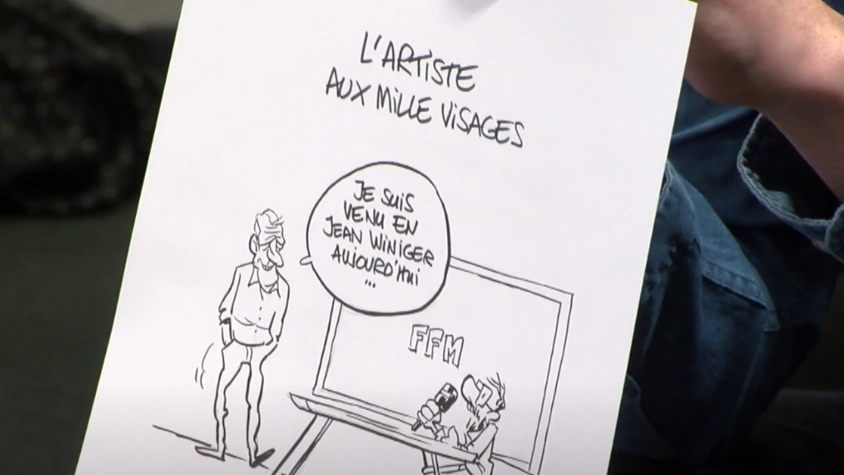 L'ARTISTE
AUX MILLE VISAGES
JE SUIS
VENU EN
JEAN WINIGER
AUJOURD'HUI
...
FFM